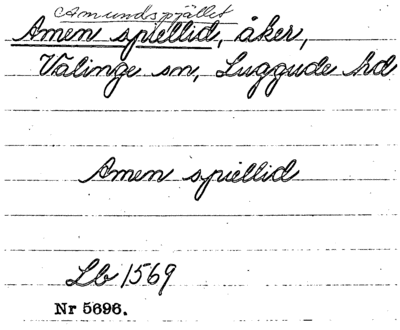 Amundspjället
Amen spiellid, åker,
Välinge sn, Luggude hd
Amen spiellid
Lb 1569
Nr 5696.